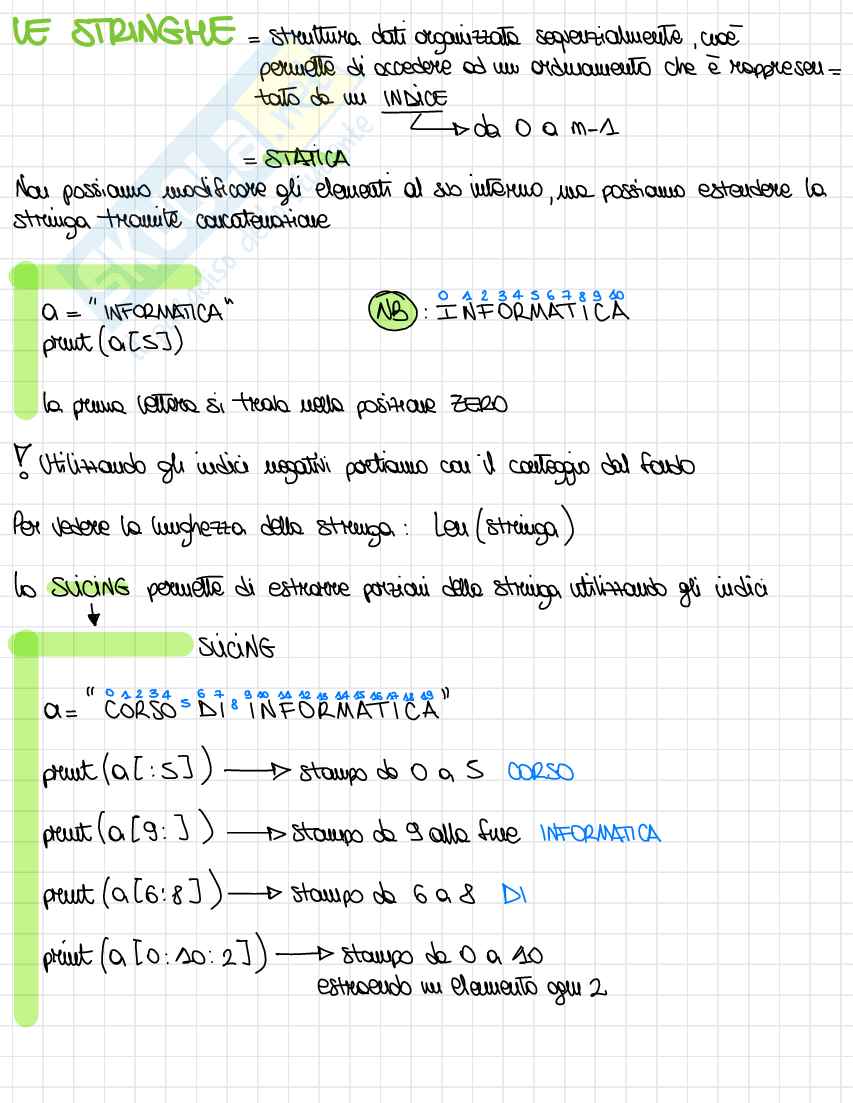 LE STRINGHE = struttura dati organizzata sequenzialmente, cioè
permette di accedere ad un ordinamento che è rappresen=
tato da un INDICE
da 0 a m-1
= STATICA
Non possiamo modificare gli elementi al suo interno, ma possiamo estendere la
stringa tramite concatenazione
0 1 2 3 4 5 6 7 8 9 10
a = "INFORMATICA" NB: INFORMATICA
print (a[5])
la prima lettera si trova nella posizione ZERO
! Utilizzando gli indici negativi partiamo con il conteggio dal fondo
Per vedere la lunghezza della stringa: Len (stringa)
lo SLICING permette di estrarre porzioni della stringa utilizzando gli indici
SLICING
0 1 2 3 4 5 6 7 8 9 10 11 12 13 14 15 16 17 18 19
a = "CORSO DI INFORMATICA"
print (a[:5]) → stampo da 0 a 5 CORSO
print (a[9:]) → stampo da 9 alla fine INFORMATICA
print (a[6:8]) → stampo da 6 a 8 DI
print (a[0:10:2]) → stampo da 0 a 10
estraendo un elemento ogni 2